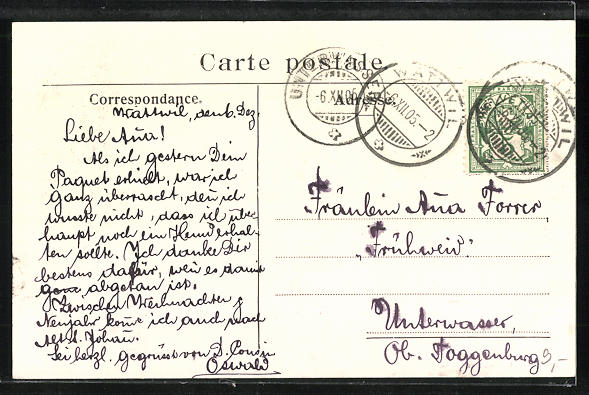 Carte postale
Correspondance. Adresse
Wattwil, den 6. Dez.
Liebe Aña!
Als ich gestern Dein
Paquet erhielt, war ich
ganz überrascht, deñ ich
wusste nicht, dass ich über-
haupt noch ein Hemd erhal-
ten sollte. Ich danke Dir
bestens dafür, weñ es damit
ganz abgetan ist.
Zwischen Weihnachten &
Neujahr kome ich auch nach
Alt St. Johañ.
Sei herzl. gegrüsst von D. Cousin
Oswald
Fräulein Aña Forrer,
"Frühweid"
Unterwasser,
Ob. Toggenburg
UNTERWASSER
-6.XII.05.
WATTWIL
6.XII.05.-2
WATTWIL
HELVETIA